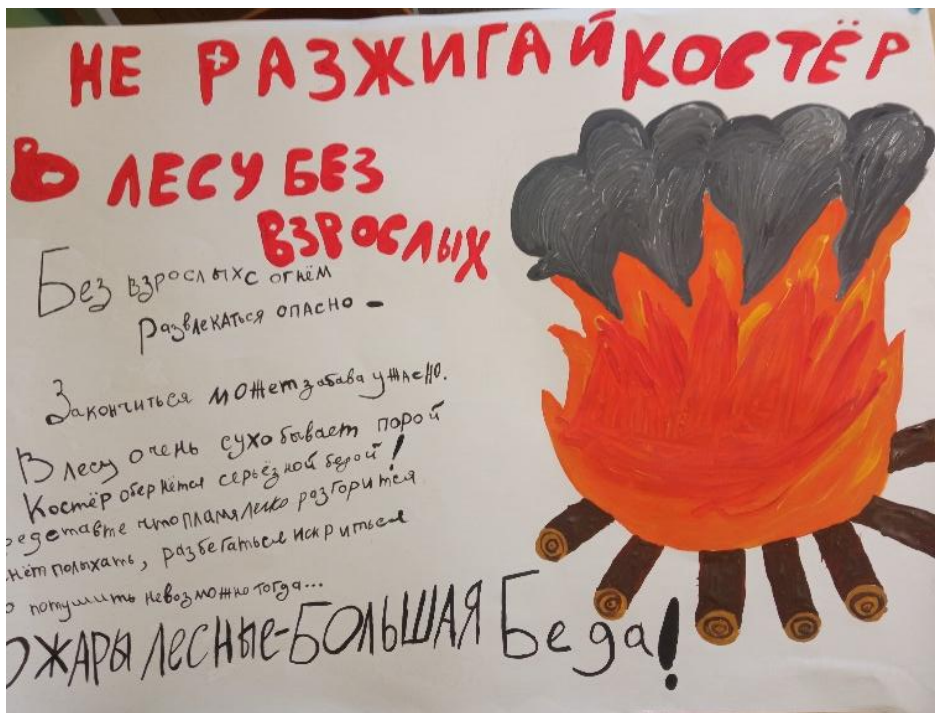 НЕ РАЗЖИГАЙ КОСТЁР
В ЛЕСУ БЕЗ
ВЗРОСЛЫХ
Без взрослых с огнём
развлекаться опасно -
Закончиться может забава ужасно.
В лесу очень сухо бывает порой
Костёр обернётся серьёзной бедой!
едставте что пламя легко разгорится
нёт полыхать, разбегаться искриться
потушить невозможно тогда...
ОЖАРЫ ЛЕСНЫЕ-БОЛЬШАЯ Беда!